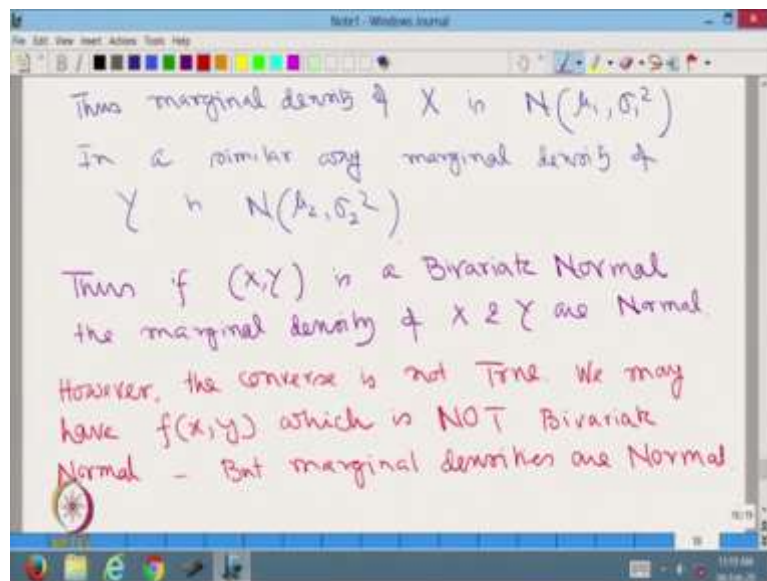 Note1 - Windows Journal
File Edit View Insert Actions Tools Help
Thus marginal density of X is N(μ₁, σ₁²)
In a similar way marginal density of
Y is N(μ₂, σ₂²)
Thus if (X,Y) is a Bivariate Normal
the marginal density of X & Y are Normal.
However, the converse is not True. We may
have f(x,y) which is NOT Bivariate
Normal - But marginal densities are Normal